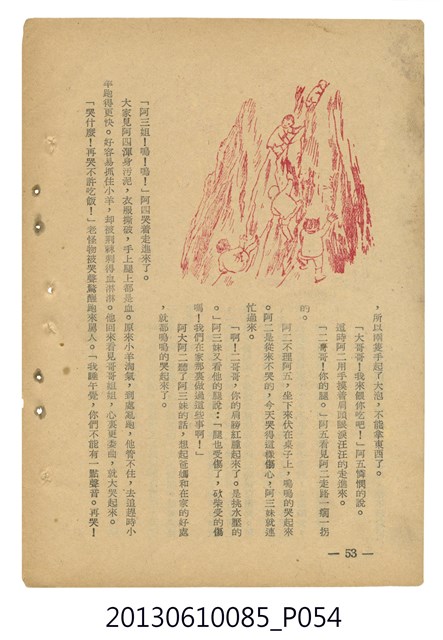 ，所以兩隻手起了大泡，不能拿東西了。
「大哥哥！我來餵你吃吧！」阿五憐憫的說。
這時阿二用手摸着肩頭眼淚汪汪的走進來。
「二哥哥！你的腿。」阿五看見阿二走路一瘸一拐
的。
阿二不理阿五，坐下來伏在桌子上，嗚嗚的哭起來
。阿二是從來不哭的，今天哭得這樣傷心，阿三妹就連
忙過來。
「啊！二哥哥，你的肩膀紅腫起來了。是挑水壓的
。」阿三妹又看他的腿說：「腿也受傷了，砍柴受的傷
嗎！我們在家那裏做過這些事啊！」
阿大阿二聽了阿三妹的話，想起爸媽和在家的好處
，就都嗚嗚的哭起來了。
「阿三姐！嗚！嗚！」阿四哭着走進來了。
大家見阿四渾身污泥，衣服撕破，手上腿上都是血。原來小羊淘氣，到處亂跑，他管不住，去追趕時小
羊跑得更快。好容易抓住小羊，却被荆棘刺得血淋淋。他回來看見哥哥姐姐，心裏更委曲，就大哭起來。
「哭什麼！再哭不許吃飯！」老怪物被哭聲驚醒跑來罵人。「我睡午覺，你們不能有一點聲音。再哭！
— 53 —
20130610085_P054